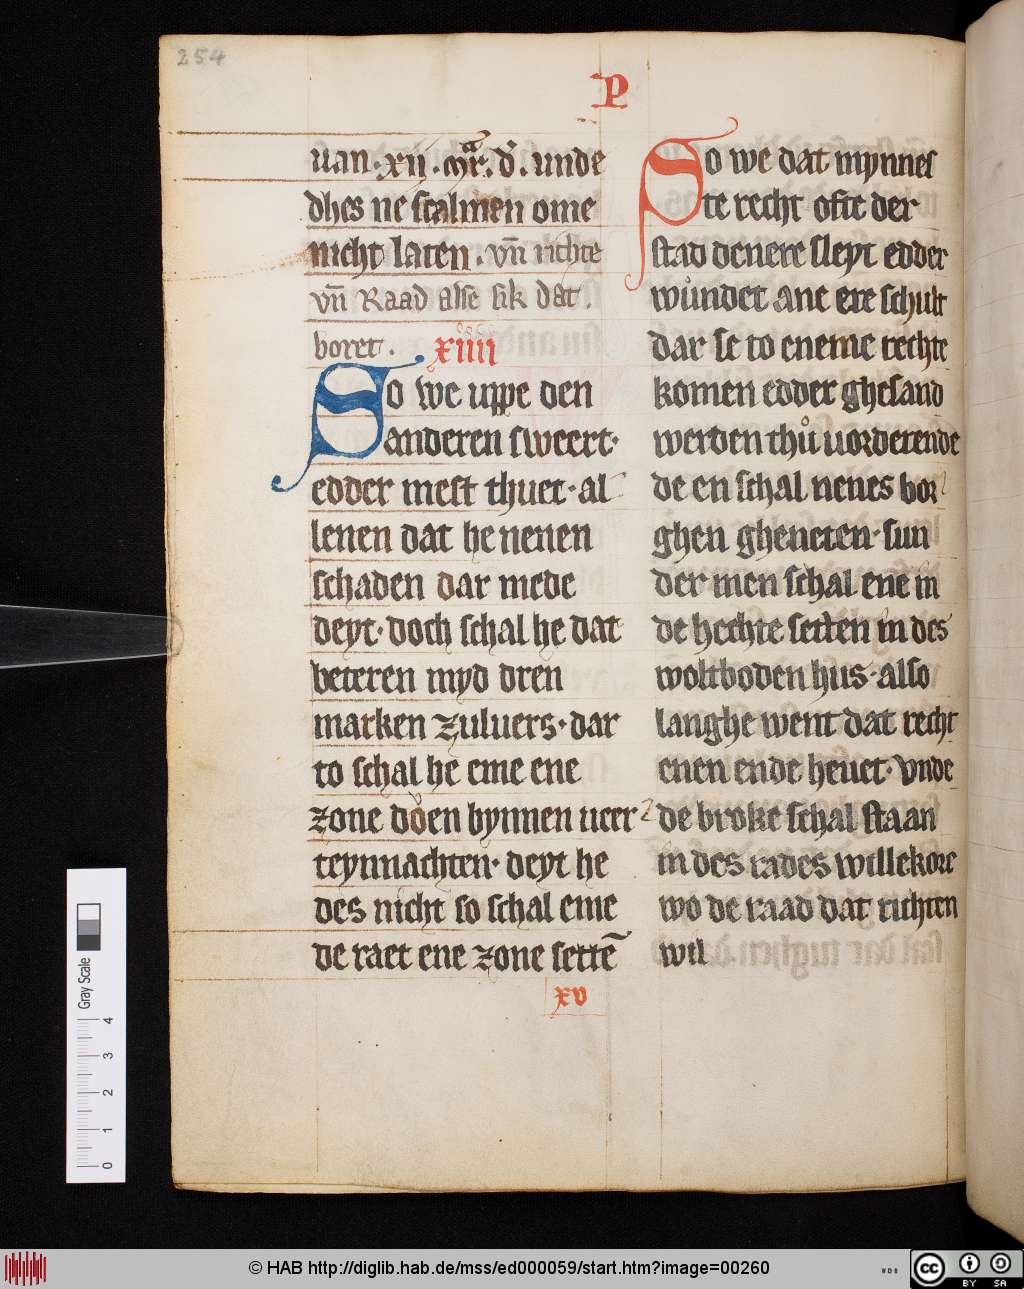 254
P
uan · xii · mr̄. d. unde
dhes ne scalmen ome
nicht laten. vn̄ richte
vn̄ Raad alse sik dat
boret. xiiii
So we uppe den
anderen sweert·
edder mest thuet· al
lenen dat he nenen
schaden dar mede
deyt· doch schal he dat
beteren myd dren
marken zuluers· dar
to schal he eme ene
zone doͤen bynnen ueer
teynnachten· deyt he
des nicht so schal eme
de raet ene zone settē
xv
So we dat mynnes
te recht ofte der
stad denere sleyt edder
wůndet ane ere schult
dar se to eneme rechte
komen edder ghesand
werden thů uorderende
de en schal nenes bor
ghen gheneten· sun
der men schal ene in
de hechte setten in des
woltboden hus· also
langhe went dat recht
enen ende heuet· Vnde
de broke schal staan
in des rades willekore
wo de raad dat richten
wil
Gray Scale
0 1 2 3 4
© HAB http://diglib.hab.de/mss/ed000059/start.htm?image=00260
WDB
cc BY SA